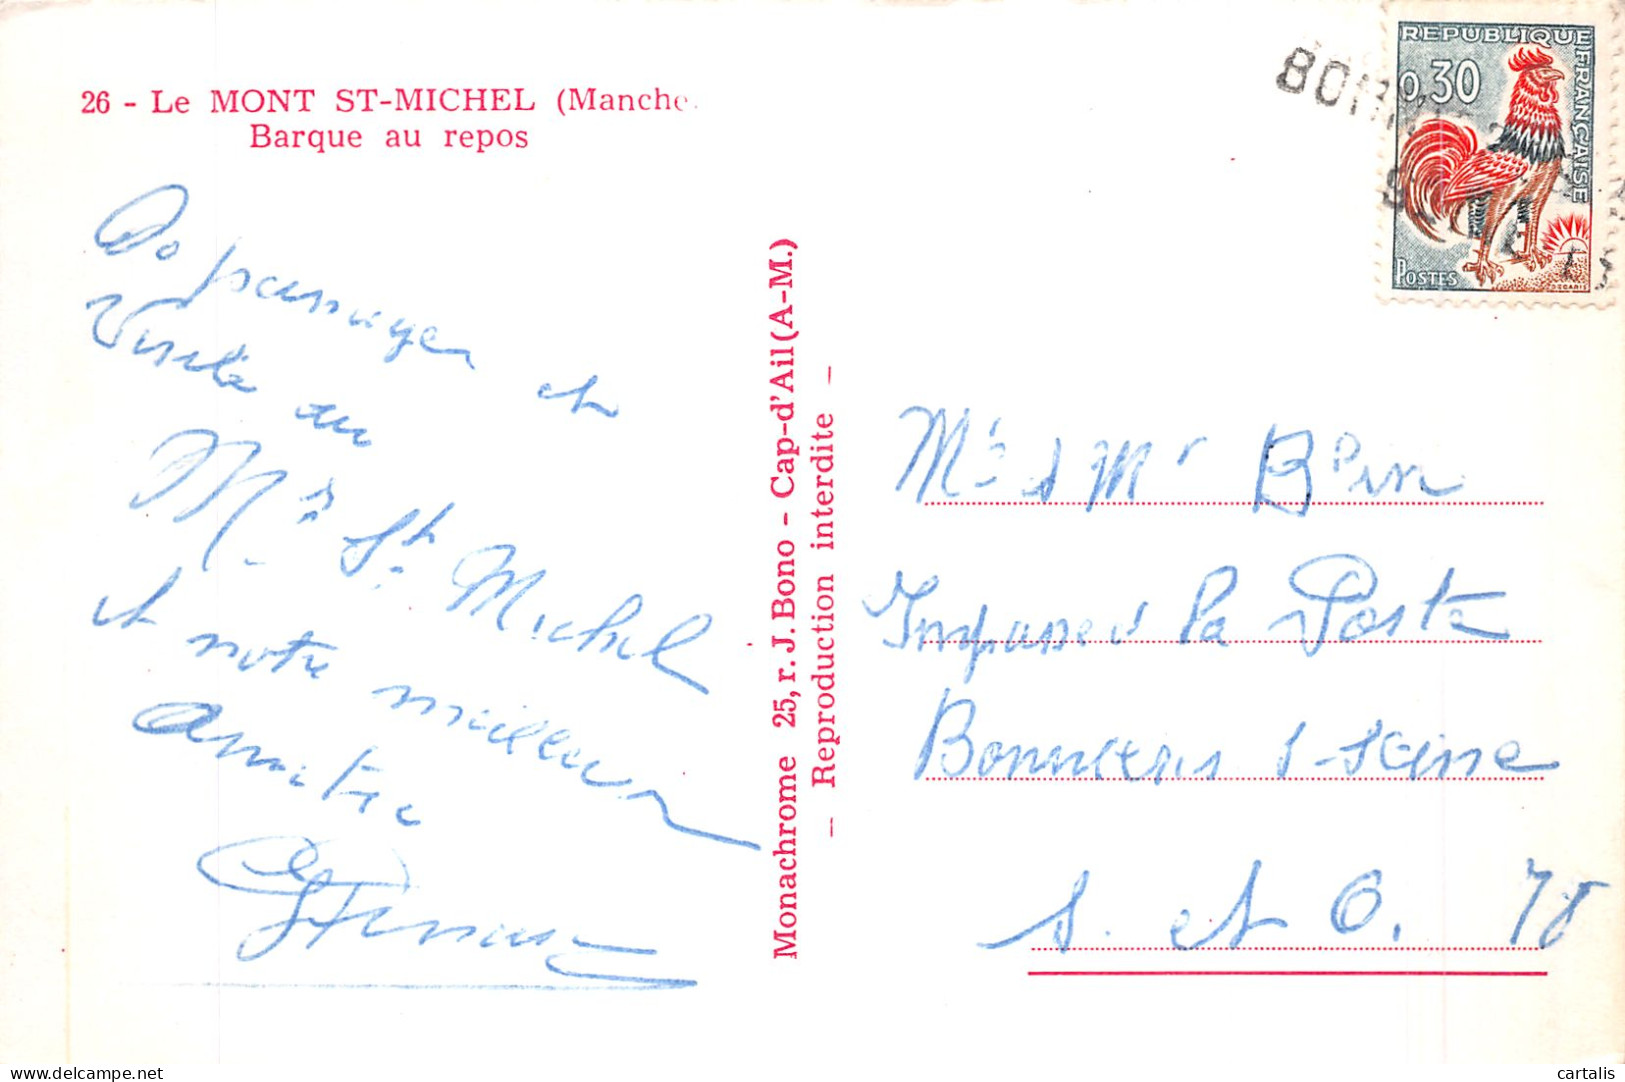 26 - Le MONT ST-MICHEL (Manche
Barque au repos
De passage et
Visite au
Mt St Michel
et notre meilleur
Amitié
Monachrome 25, r. J. Bono - Cap-d'Ail (A-M.)
— Reproduction interdite —
REPUBLIQUE FRANÇAISE
0,30
POSTES
DECARIS
BONN
Me & Mr
Impasse d la Poste
Bonnieres s-Seine
S. et O. 78
cartalis